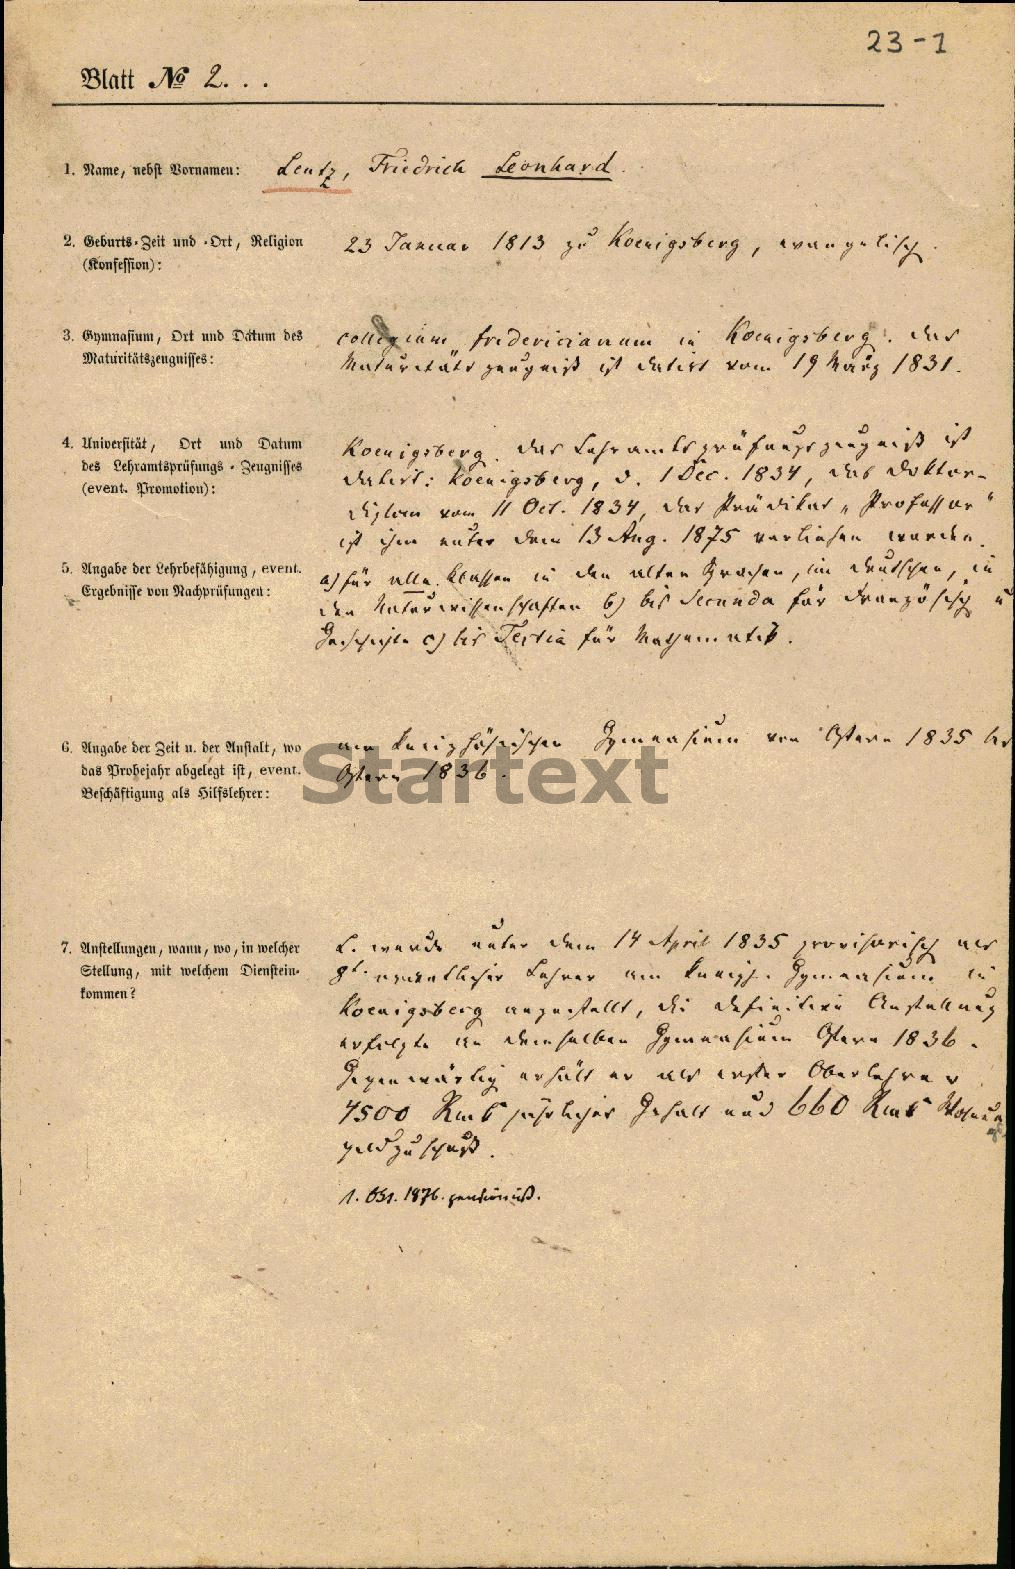 23-1
Blatt No 2. . .
1. Name, nebst Vornamen: Lentz, Friedrich Leonhard.
2. Geburts-Zeit und -Ort, Religion (Konfession): 23 Januar 1813 zu Koenigsberg, evangelisch.
3. Gymnasium, Ort und Datum des collegium fredericianum in Koenigsberg. Das
Maturitätszeugnisses: Maturitätszeugniß ist datirt vom 19 März 1831.
4. Universität, Ort und Datum Koenigsberg. Das Lehramtsprüfungszeugniß ist
des Lehramtsprüfungs-Zeugnisses datirt: Koenigsberg, d. 1 Dec. 1834, das Doktor-
(event. Promotion): diplom vom 11 Oct. 1834, das Prädikat „Professor"
ist ihm unter dem 13 Aug. 1875 verliehen worden.
5. Angabe der Lehrbefähigung, event. a) für alle Klassen in den alten Sprachen, im Deutschen, in
Ergebnisse von Nachprüfungen: den Naturwissenschaften b) bis Secunda für Französisch u
Geschichte c) bis Tertia für Mathematik.
6. Angabe der Zeit u. der Anstalt, wo am kneiphöfischen Gymnasium von Ostern 1835 bis
das Probejahr abgelegt ist, event. Ostern 1836.
Beschäftigung als Hilfslehrer:
Startext
7. Anstellungen, wann, wo, in welcher L. wurde unter dem 14 April 1835 provisorisch als
Stellung, mit welchem Dienstein- 8t. ordentlicher Lehrer am kneiph. Gymnasium in
kommen? Koenigsberg angestellt, die definitive Anstellung
erfolgte an demselben Gymnasium Ostern 1836.
Gegenwärtig erhält er als erster Oberlehrer
4500 Rmk jährliches Gehalt und 660 Rmk Wohnungs
geldzuschuß.
1. Okt. 1876. pensionirt.